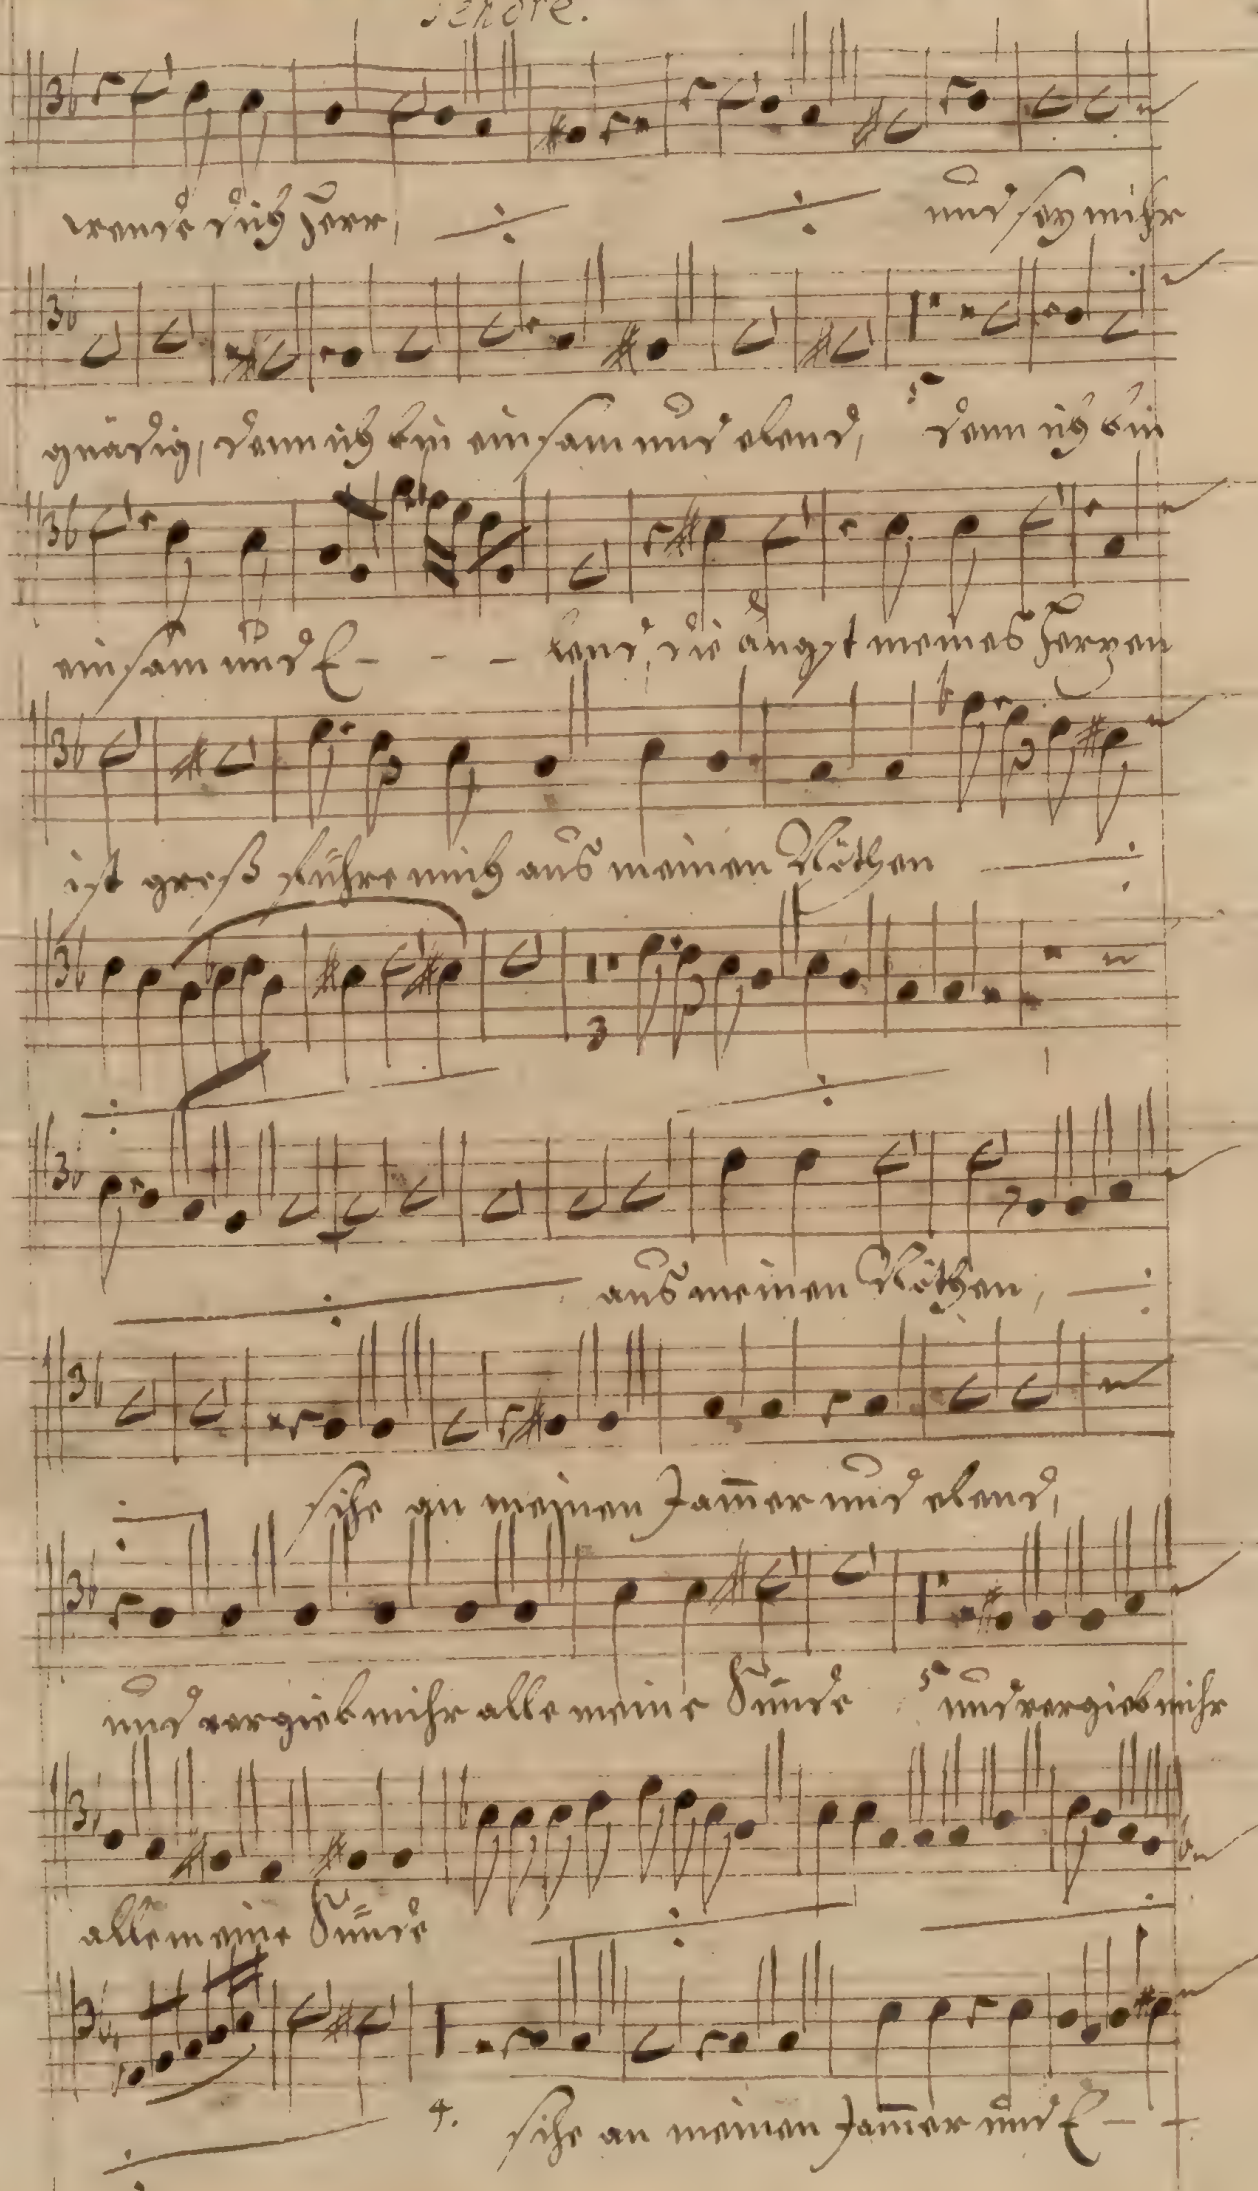 Tenore.
wende dich Herr, ./. ./. und sey mihr
gnädig, denn ich bin einsam und elend, 5 denn ich bin
einsam und E - - - lend, die angst meines Herzen
ist groß führe mich aus meinen Nöthen ./.
3
./. ./.
./. aus meinen Nöthen, ./.
./. sihe an meinen Jam̄er und elend,
und vergieb mihr alle meine Sünde 5 und vergieb mihr
alle meine Sünde ./. ./.
./. 4. sihe an meinen Jam̄er und E - -